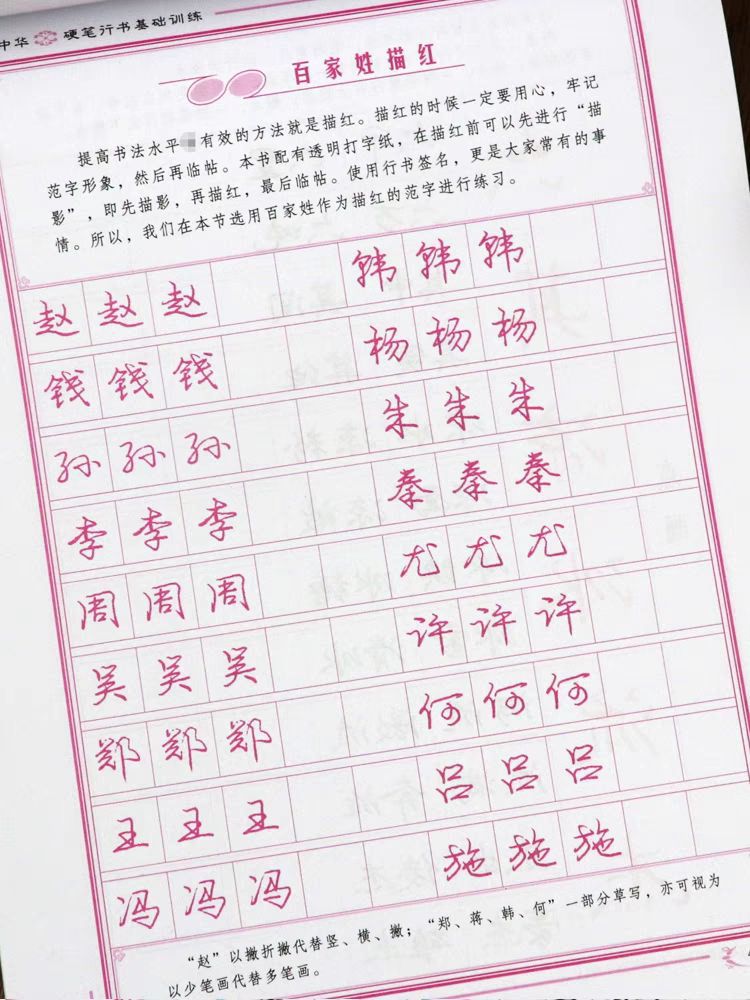 中华 硬笔行书基础训练
百家姓描红
提高书法水平 有效的方法就是描红。描红的时候一定要用心，牢记
范字形象，然后再临帖。本书配有透明打字纸，在描红前可以先进行“描
影”，即先描影，再描红，最后临帖。使用行书签名，更是大家常有的事
情。所以，我们在本节选用百家姓作为描红的范字进行练习。
赵 赵 赵 韩 韩 韩
钱 钱 钱 杨 杨 杨
孙 孙 孙 朱 朱 朱
李 李 李 秦 秦 秦
周 周 周 尤 尤 尤
吴 吴 吴 许 许 许
郑 郑 郑 何 何 何
王 王 王 吕 吕 吕
冯 冯 冯 施 施 施
“赵”以撇折撇代替竖、横、撇；“郑、蒋、韩、何”一部分草写，亦可视为
以少笔画代替多笔画。